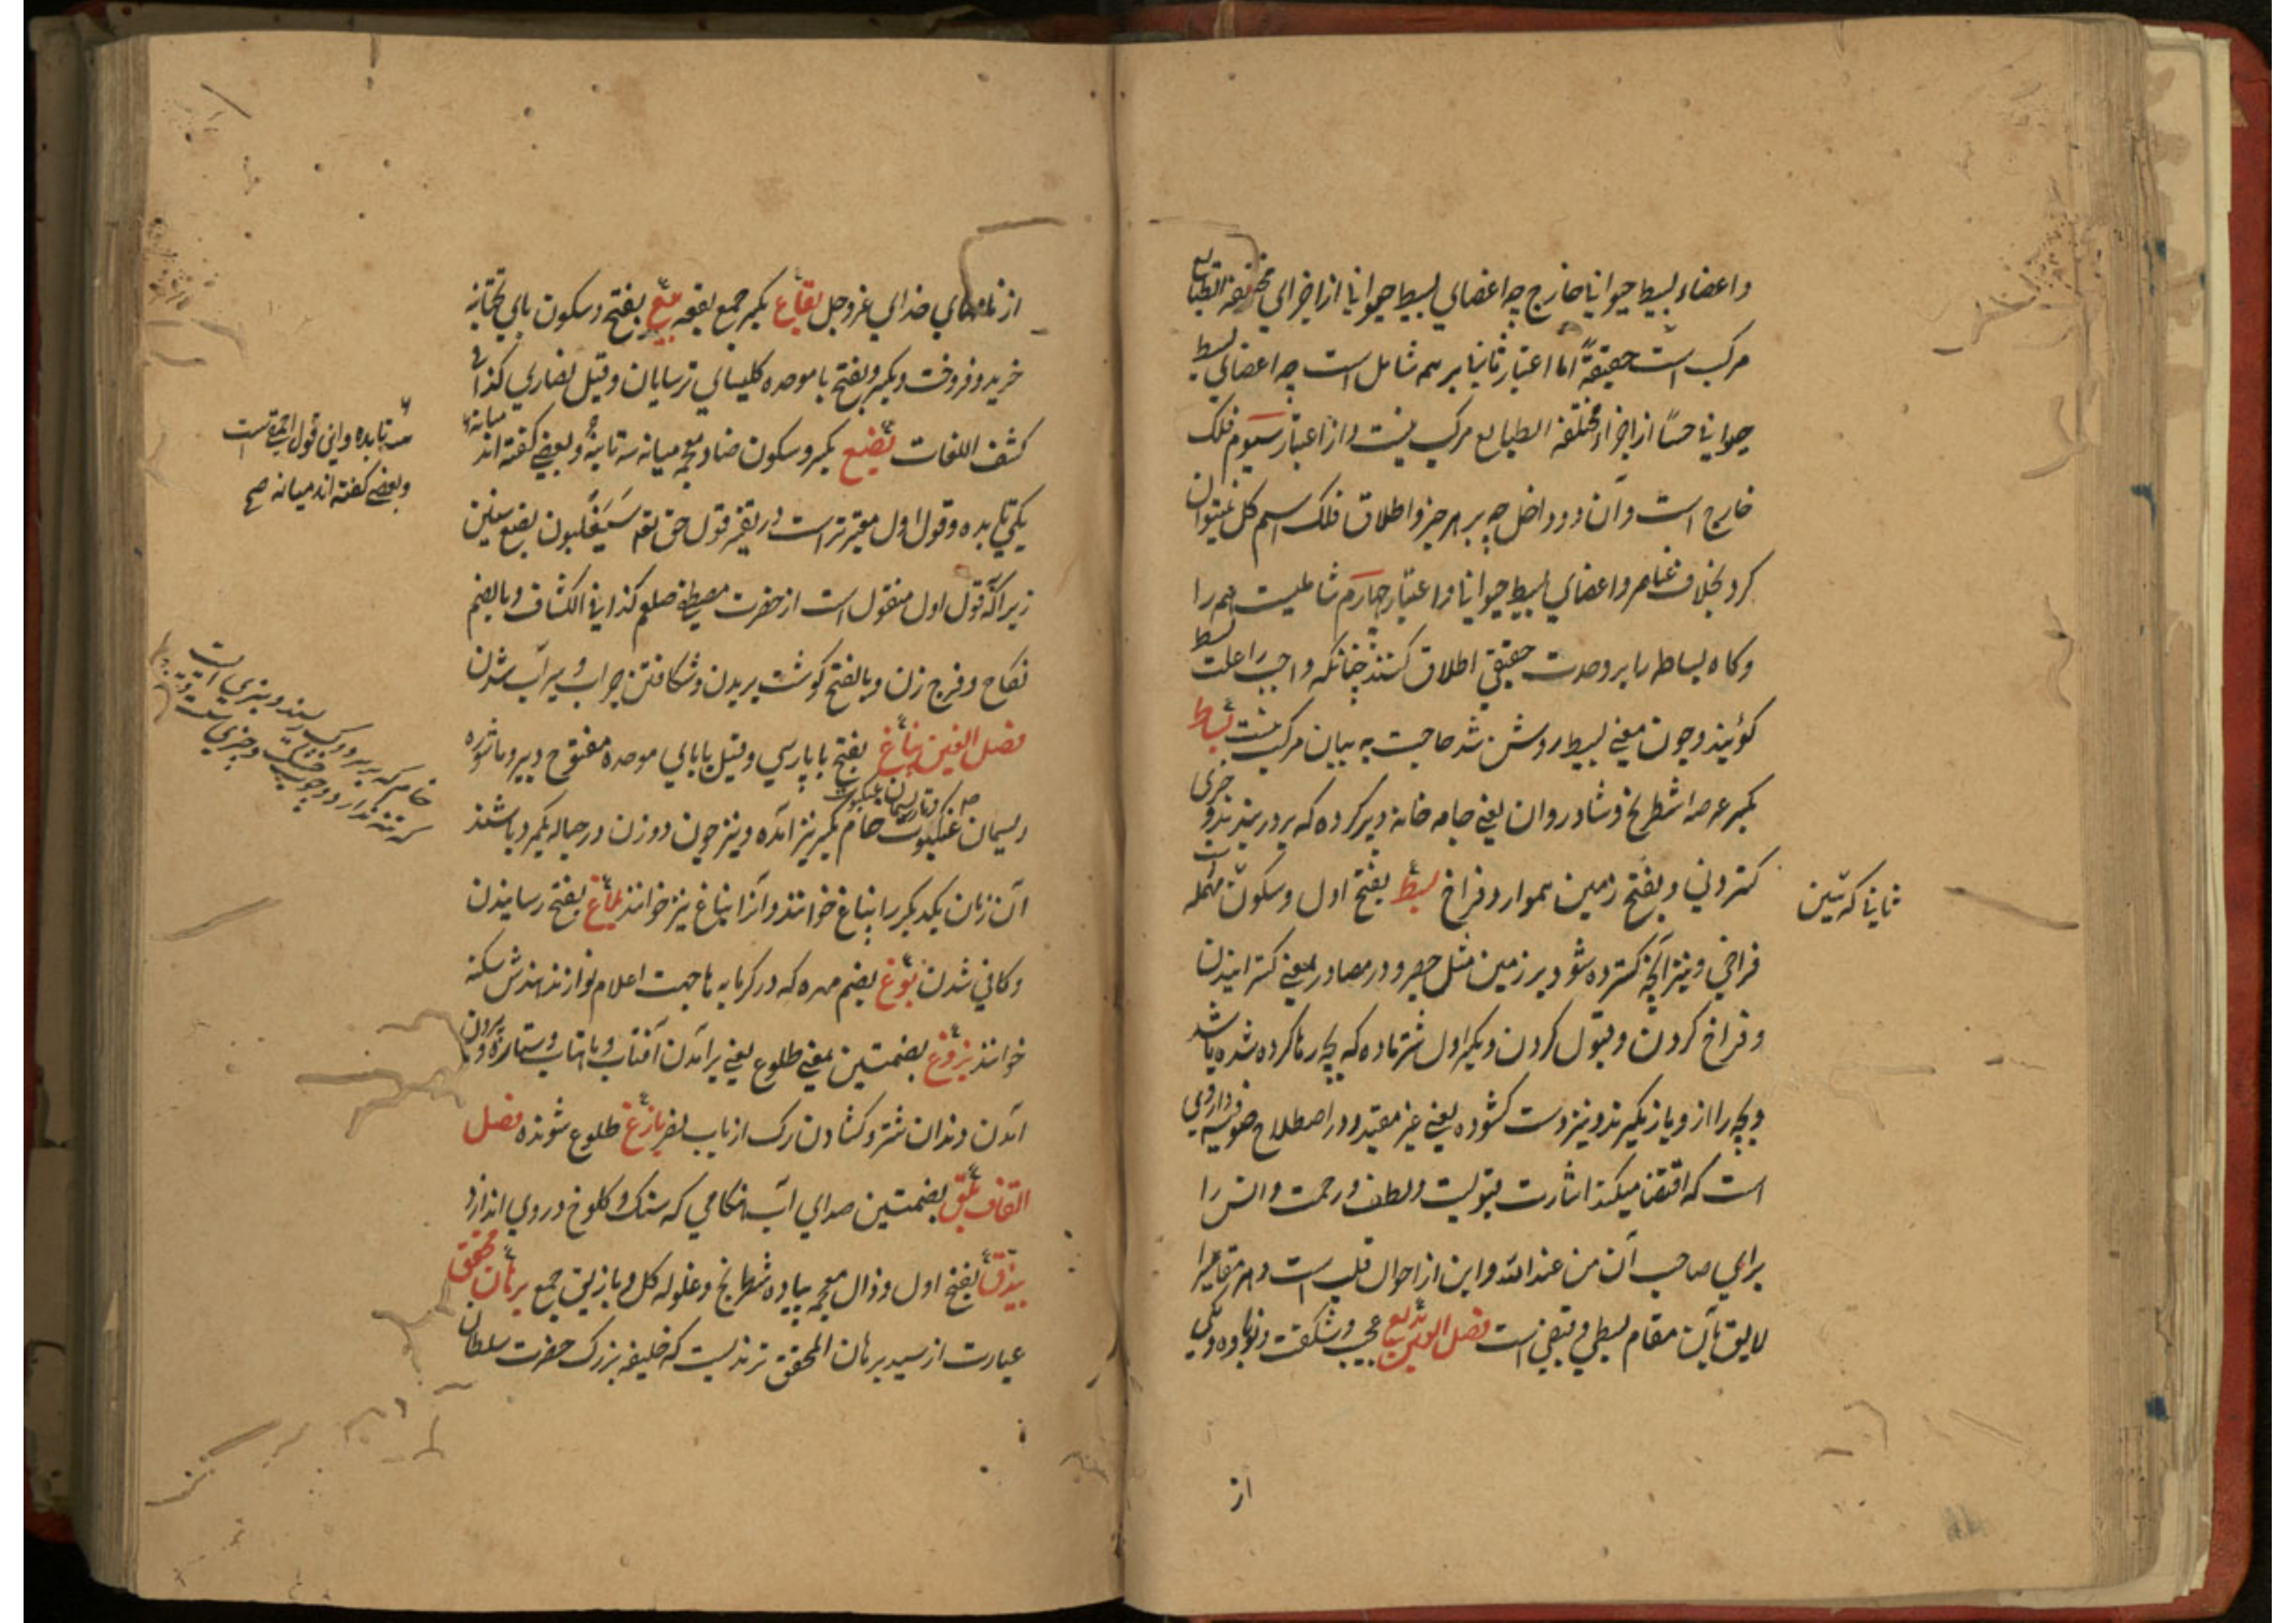 واعضاء بسیط حیوانیا خارج چه اعضای بسیط حیوانیا از اجزای مختلفة الطبایع
مرکب است حقیقةً اما اعتبار ثانیا بر هم شامل است چه اعضای بسیط
حیوانیا حسًا از اجزاء مختلفة الطبایع مرکب نیست و از اعتبار سیوم فلک
خارج است و آن دو داخل چه بر هر جزو اطلاق فلک اسم کل نمیتوان
کرد بخلاف عناصر و اعضای بسیط حیوانیا و اعتبار چهارم شاملیت هم را
و کاه بساطه را بر وحدت حقیقی اطلاق کنند چنانکه واجب را علت بسیط
کویند و چون معنی بسیط روشن شد حاجت به بیان مرکب نیست بساط
بکسر عرصه شطرنج و شادروان یعنی جامه خانه و پرکرده که بر در بندند و جزی
کستردنی و بفتح زمین هموار و فراخ بسط بفتح اول و سکون مهمله
فراخی و نیز آنچه کسترده شود بر زمین مثل حصیر و در مصادر بمعنی کسترانیدن
و فراخ کردن و قبول کردن و بکسر اول شتر ماده که بچه رها کرده شده باشد
و بچه را از و باز نکیرند و نیز دست کشوده یعنی غیر مقید و در اصطلاح صوفیه واردی
است که اقتضا میکند اشارت بقبولیت و لطف و رحمت و انس را
برای صاحب آن من عند الله و این از احوال قلب است و هر مقامیرا
لایق بآن مقام بسطی و قبضی است فصل العین بدیع عجب و شکفت و نوباوه و یکی
از
ثانیا کرتین
از نامهای خدای عزوجل بقاع بکسر جمع بقعه بیع بفتح و سکون بای تحتانیه
خرید و فروخت و بکسر و بفتح با موحده کلیسای ترسایان و قیل نصاری کذا فی
کشف اللغات بضع بکسر و سکون ضاد معجمه میانه سه تا نه و بعضی کفته اند میانه
یکی تا بده و قول اول معتبرتر است در تفسیر قول حق تع سَیَغلبون بضع سنین
زیرا که قول اول منقول است از حضرت مصطفی صلعم کذا فی الکشاف و بالضم
نکاح و فرج زن و بالفتح کوشت بریدن و شکافتن جراب و سیراب شدن
فصل الغین بناغ بفتح با پارسی و قیل بابای موحده مفتوح و پیر و ماشوره
ریسمان عنکبوت خام بکسر نیز آمده و نیز چون دو زن در حباله یکمرد باشند
آن زنان یکدیکر را بناغ خوانند و آنرا نباغ نیز خوانند بلاغ بفتح رسانیدن
و کافی شدن بوغ بضم مهره که در کرمابه ها جهت اعلام نوازند هندش سکنه
خوانند بزوغ بضمتین بمعنی طلوع یعنی برآمدن آفتاب و ماهتاب و ستاره و بیرون
آمدن دندان شتر و کشادن رک از باب نصر بازغ طلوع شونده فصل
القاف بقبق بضمتین صدای آب هنکامی که سنک و کلوخ در وی اندازد
بیذق بفتح اول و ذال معجمه پیاده شطرنج و غلوله کل و بازیق جمع برهان محقق
عبارت از سید برهان المحقق ترمذیست که خلیفه بزرک حضرت سلطان
سه تا بده و این قول ائمه است
و بعضی کفته اند میانه صح